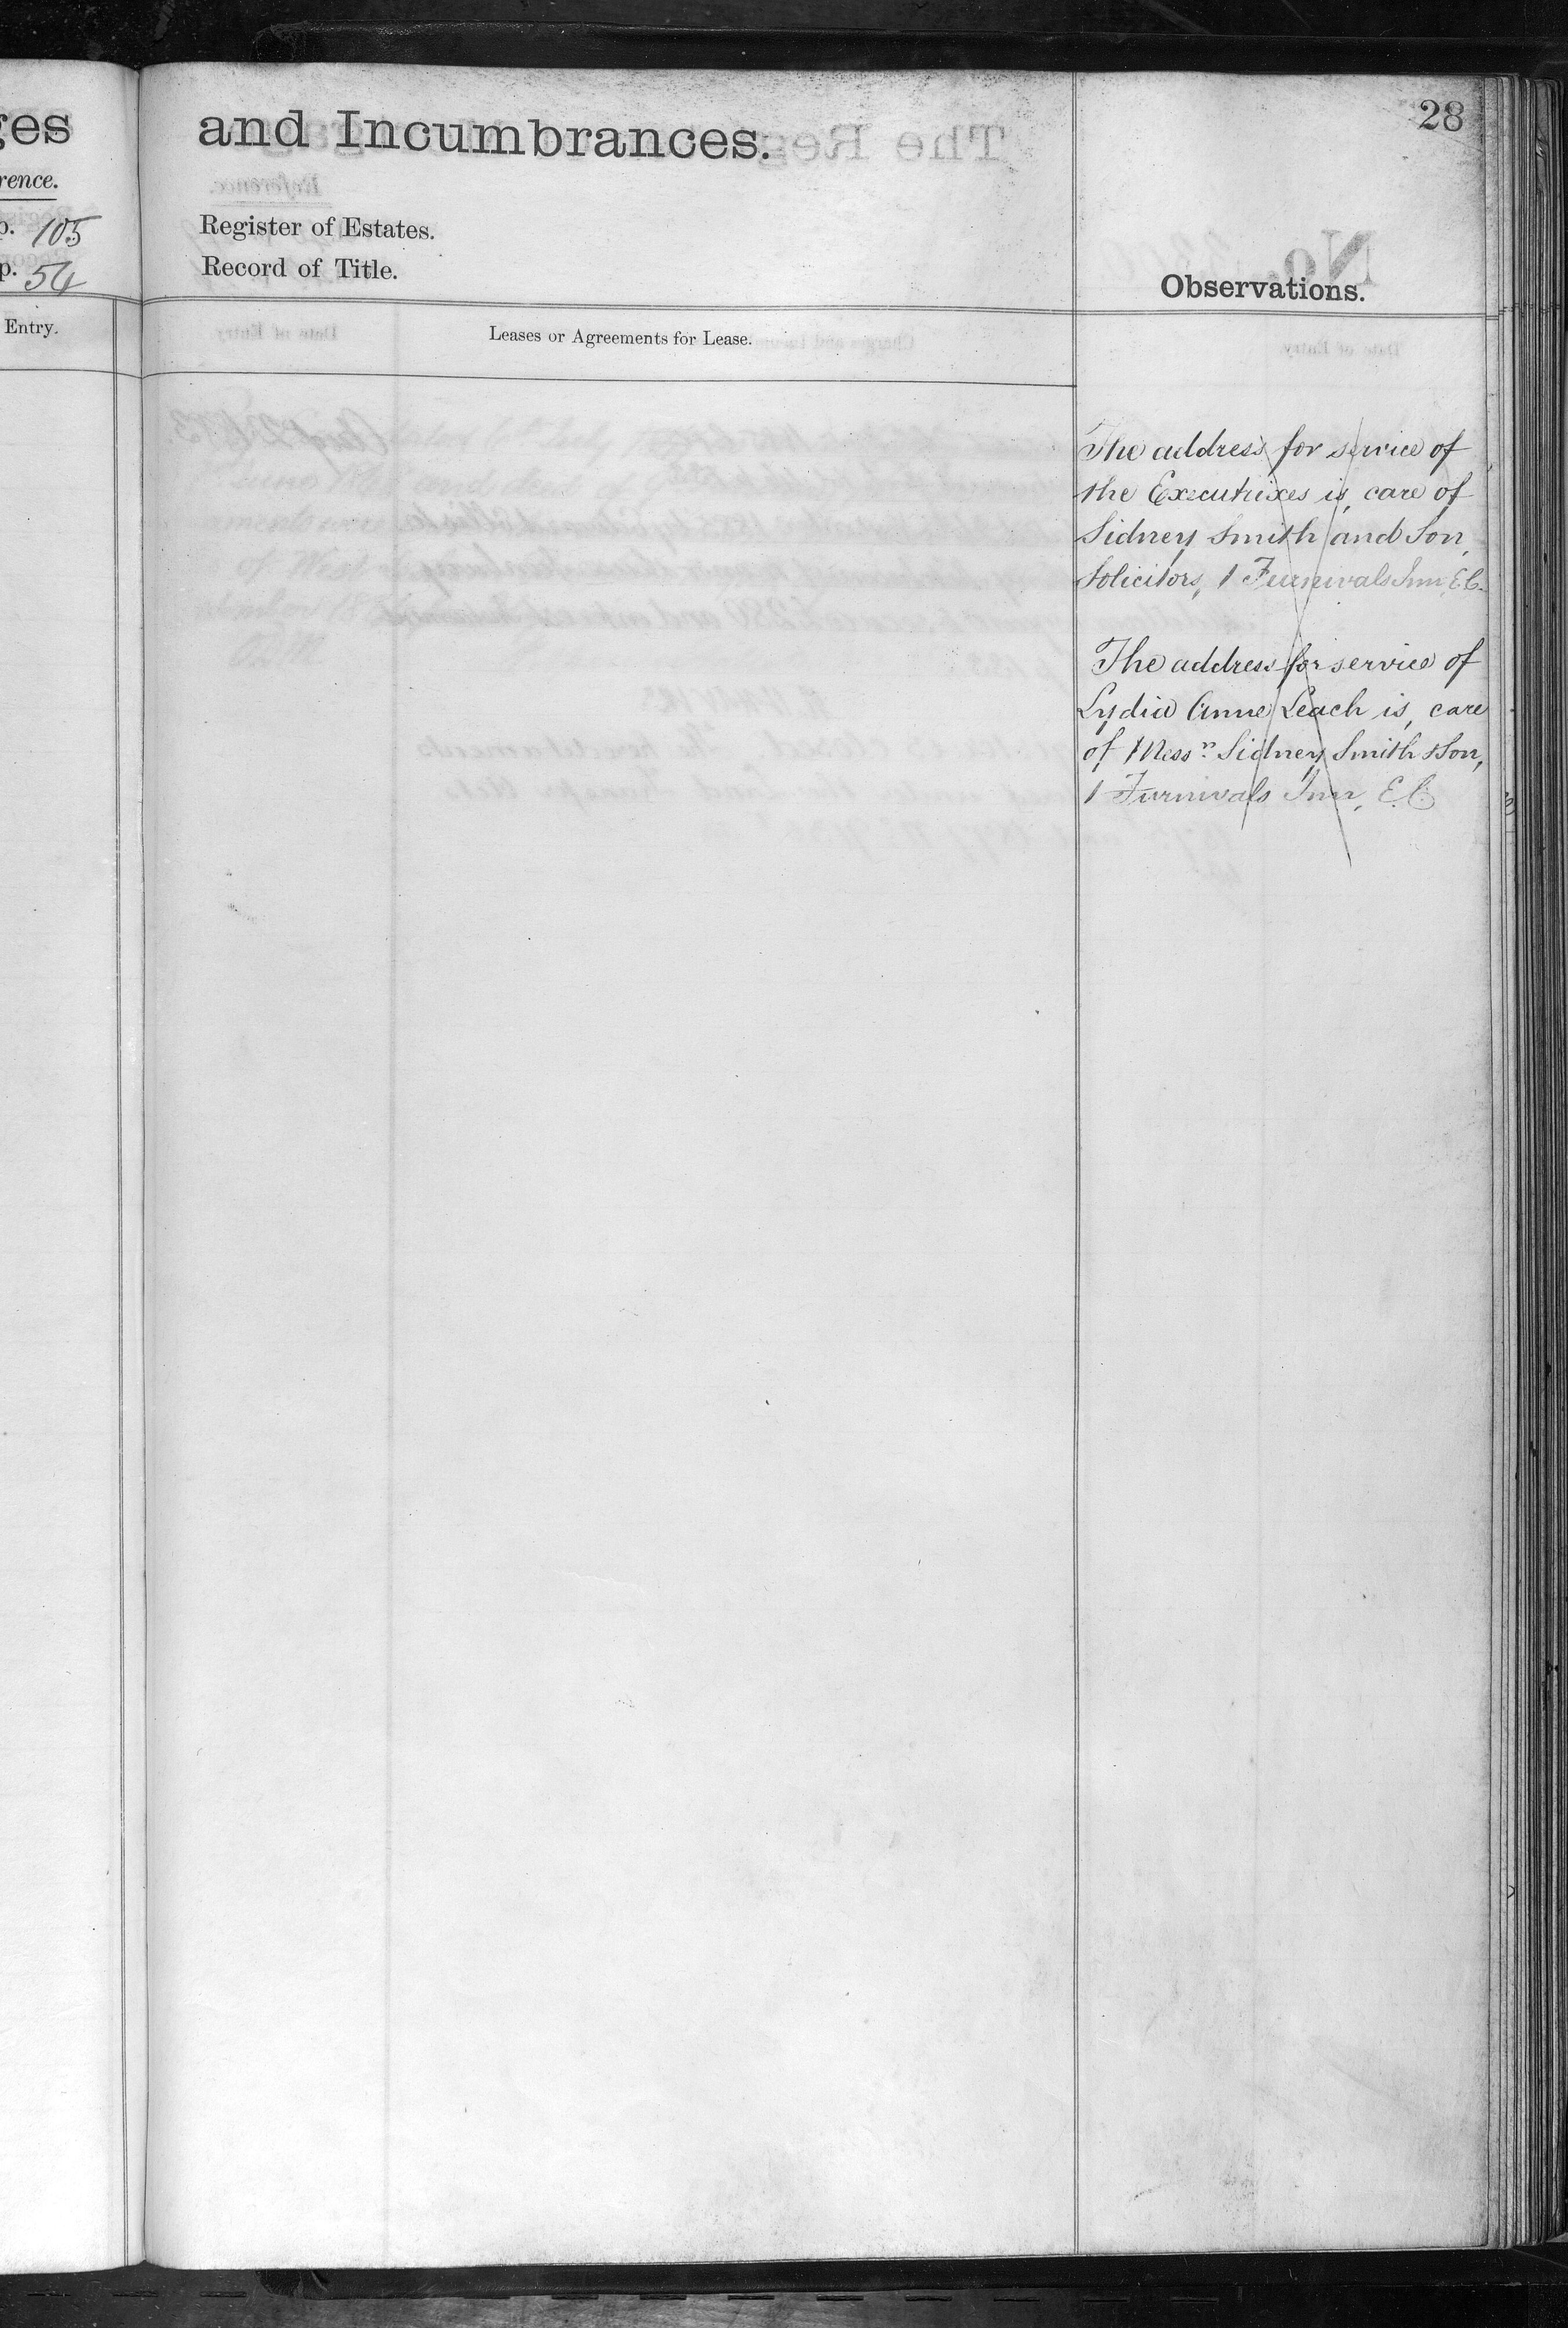 ges
rence.
p. 105
p. 54
Entry.
and Incumbrances.
28
Register of Estates.
Record of Title.
Observations.
Leases or Agreements for Lease.
The address for service of
the Executrixes is, care of
Sidney Smith and Son,
Solicitors, 1 Furnivals Inn, E.C.
The address for service of
Lydia Anne Leach is, care
of Messrs Sidney Smith & Son,
1 Furnivals Inn, E.C